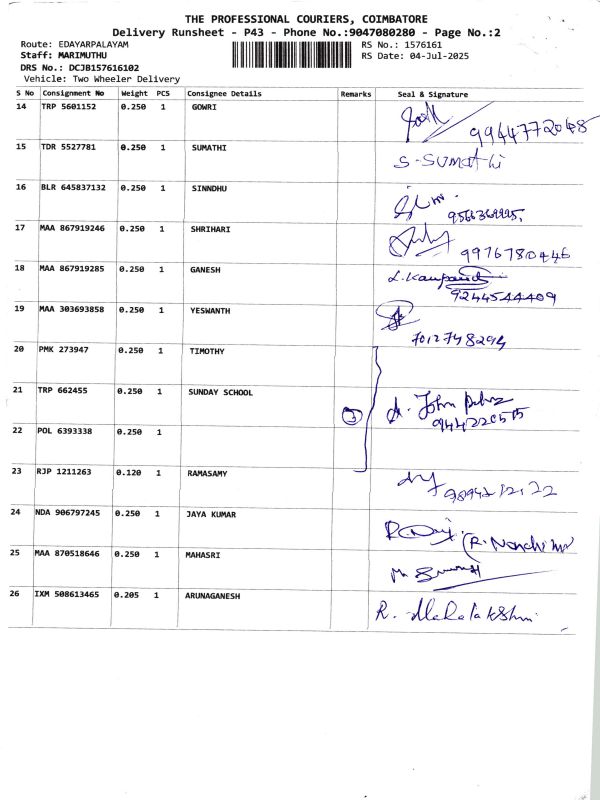 THE PROFESSIONAL COURIERS, COIMBATORE
Delivery Runsheet - P43 - Phone No.:9047080280 - Page No.:2
Route: EDAYARPALAYAM RS No.: 1576161
Staff: MARIMUTHU RS Date: 04-Jul-2025
DRS No.: DCJB157616102
Vehicle: Two Wheeler Delivery
S No Consignment No Weight PCS Consignee Details Remarks Seal & Signature
14 TRP 5601152 0.250 1 GOWRI
9944772048
15 TDR 5527781 0.250 1 SUMATHI S-SUMAthi
16 BLR 645837132 0.250 1 SINNDHU
17 MAA 867919246 0.250 1 SHRIHARI
9976780446
18 MAA 867919285 0.250 1 GANESH
9244544409
19 MAA 303693858 0.250 1 YESWANTH
7012748294
20 PMK 273947 0.250 1 TIMOTHY
21 TRP 662455 0.250 1 SUNDAY SCHOOL John
3
22 POL 6393338 0.250 1
23 RJP 1211263 0.120 1 RAMASAMY
24 NDA 906797245 0.250 1 JAYA KUMAR
25 MAA 870518646 0.250 1 MAHASRI
26 IXM 508613465 0.205 1 ARUNAGANESH R. Mahalakshmi